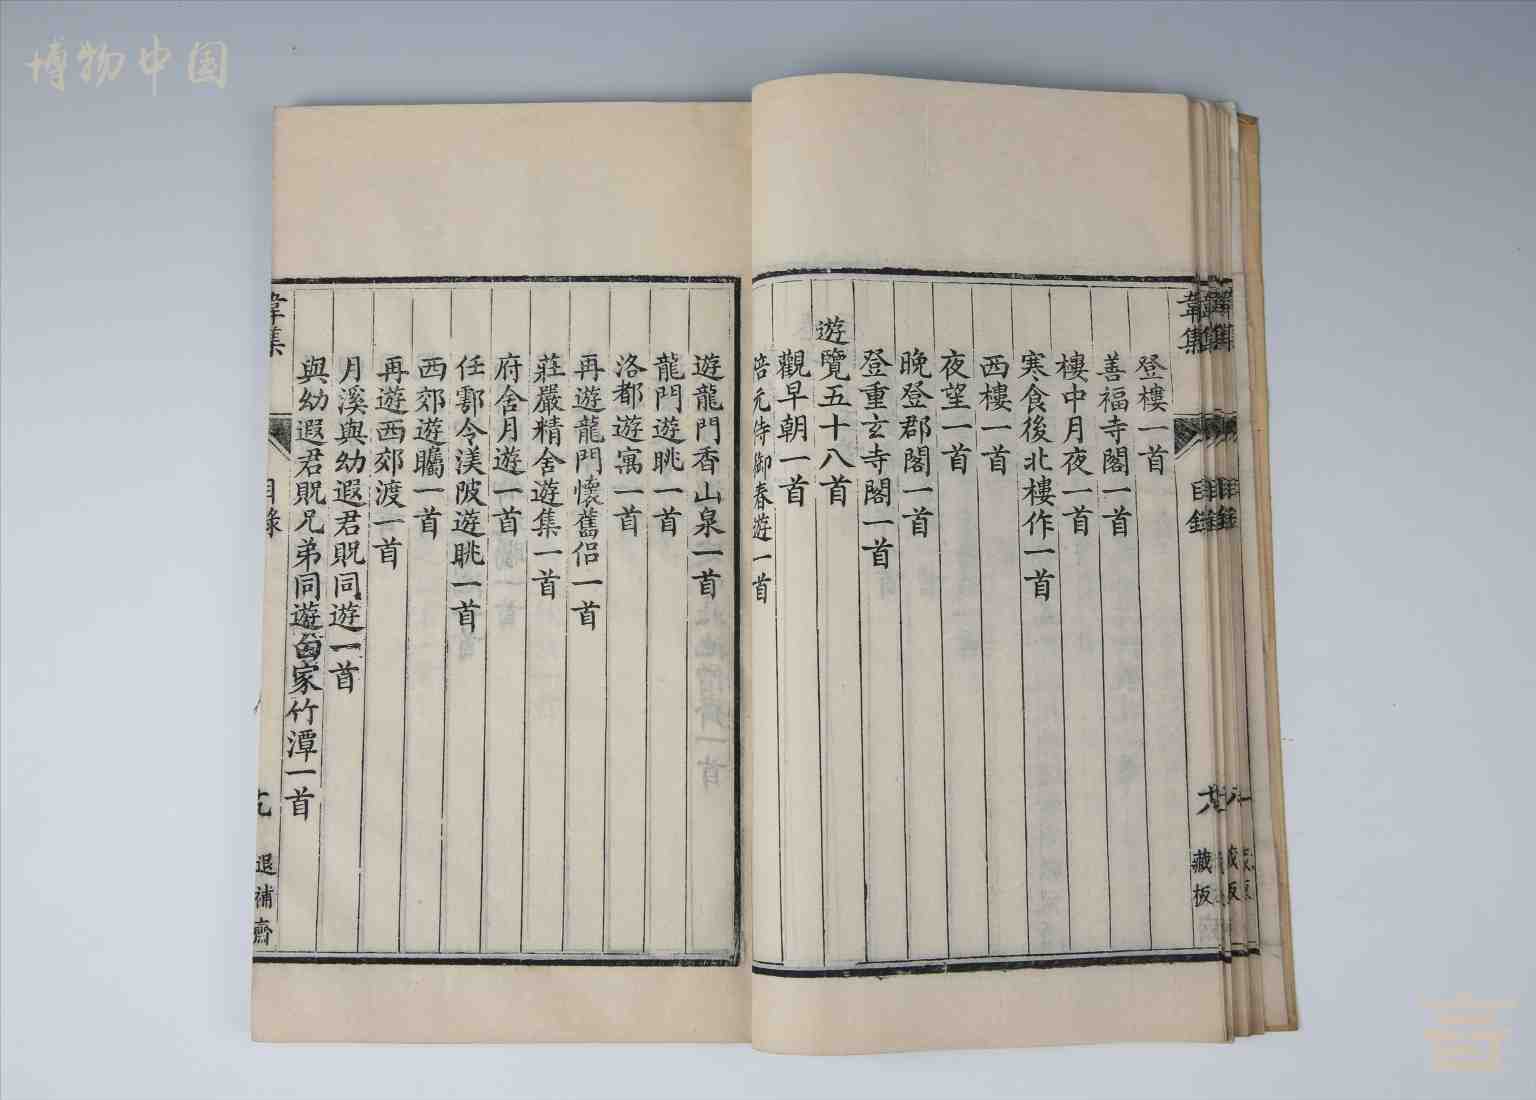 博物中国
韋集
目錄
藏板
登樓一首
善福寺閣一首
樓中月夜一首
寒食後北樓作一首
西樓一首
夜望一首
晚登郡閣一首
登重玄寺閣一首
遊覽五十八首
觀早朝一首
陪元侍御春遊一首
遊龍門香山泉一首
龍門遊眺一首
洛都遊寓一首
再遊龍門懷舊侶一首
莊嚴精舍遊集一首
府舍月遊一首
任鄠令渼陂遊眺一首
西郊遊矚一首
再遊西郊渡一首
月溪與幼遐君貺同遊一首
與幼遐君貺兄弟同遊白家竹潭一首
韋集
目錄
退補齋